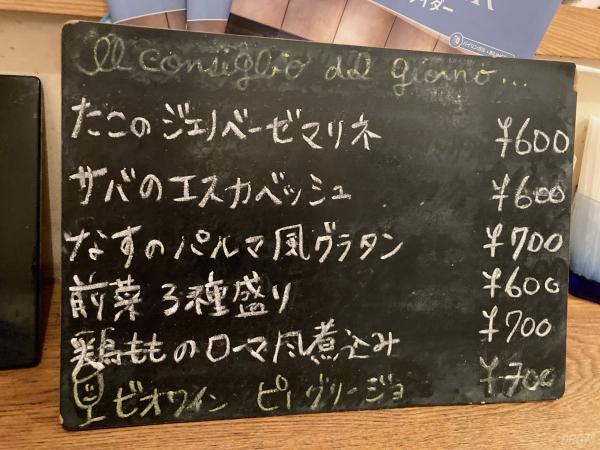 イダー
Il consiglio del giorno...
たこのジェノベーゼマリネ ¥600
サバのエスカベッシュ ¥600
なすのパルマ風グラタン ¥700
前菜3種盛り ¥600
鶏もものローマ風煮込み ¥700
ビオワイン ピノグリージョ ¥700